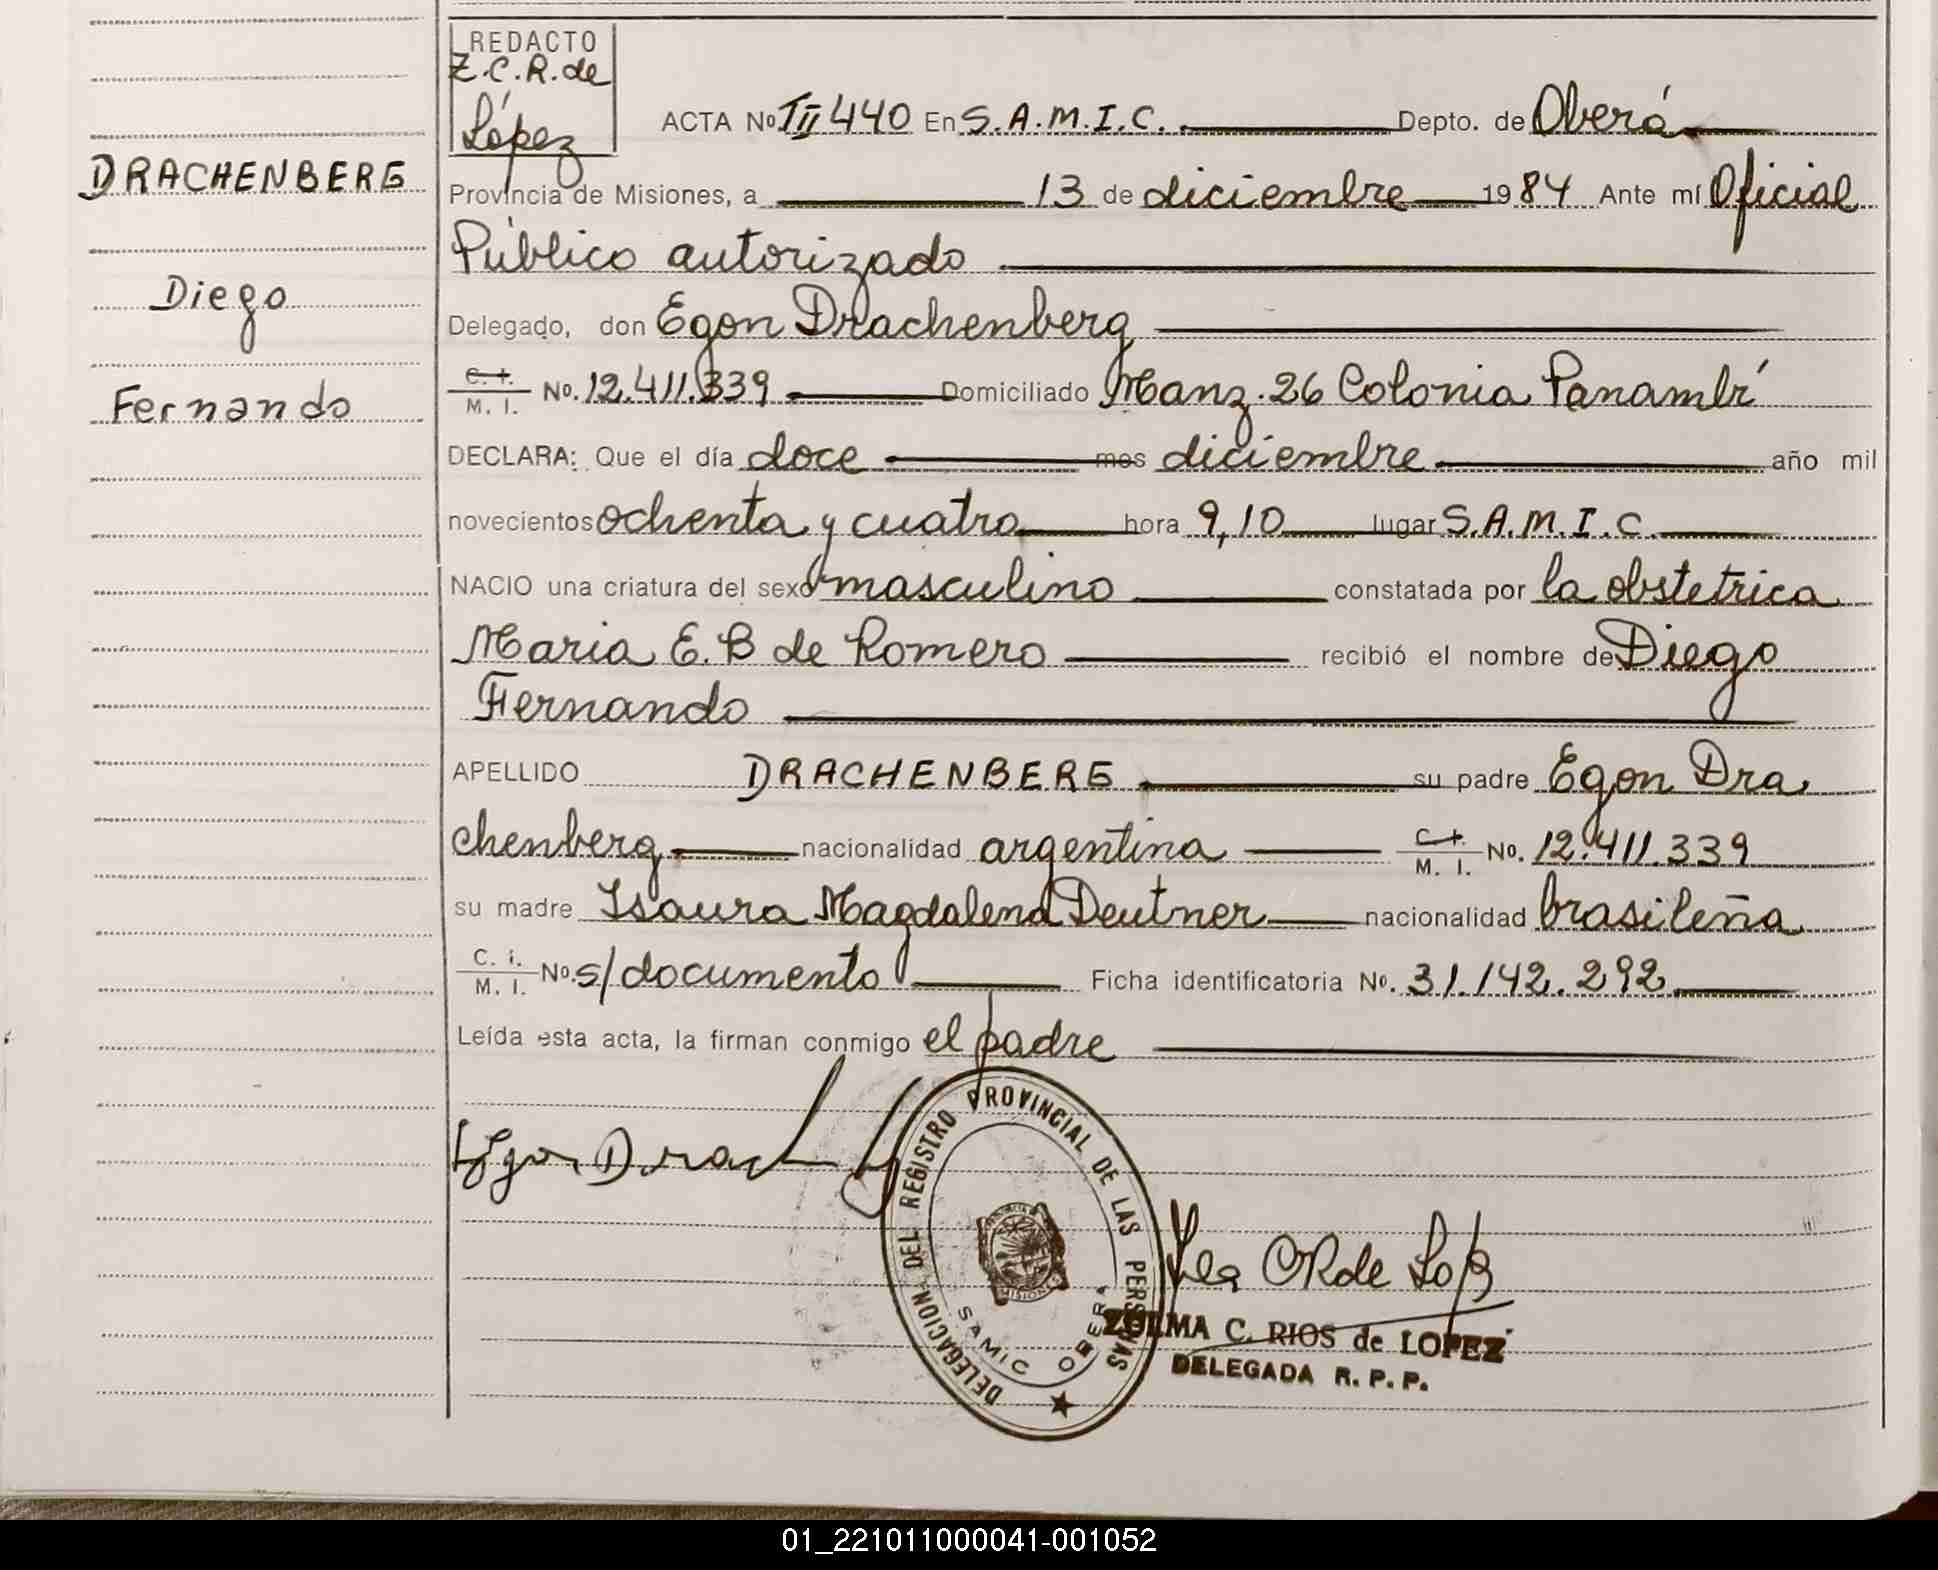 REDACTO
Z.C.R. de
López
ACTA Nº III 440 En S.A.M.I.C. Depto. de Oberá
DRACHENBERG
Provincia de Misiones, a 13 de diciembre 1984 Ante mí Oficial
Público autorizado
Diego
Delegado, don Egon Drachenberg
Fernando
C. I. M. I. No. 12.411.339 Domiciliado Manz. 26 Colonia Panambí
DECLARA: Que el día doce mes diciembre año mil
novecientos ochenta y cuatro hora 9,10 lugar S.A.M.I.C.
NACIO una criatura del sexo masculino constatada por la obstetrica
Maria E. B de Romero recibió el nombre de Diego
Fernando
APELLIDO DRACHENBERG su padre Egon Dra
chenberg nacionalidad argentina C. I. M. I. No. 12.411.339
su madre Isaura Magdalena Deutner nacionalidad brasileña
C. i. M. I. No. s/documento Ficha identificatoria No. 31.142.292
Leída esta acta, la firman conmigo el padre
Egon Drach
DELEGACION DEL REGISTRO PROVINCIAL DE LAS PERSONAS
SAMIC OBERA
CR de López
ZULMA C. RIOS de LOPEZ
DELEGADA R. P. P.
01_221011000041-001052